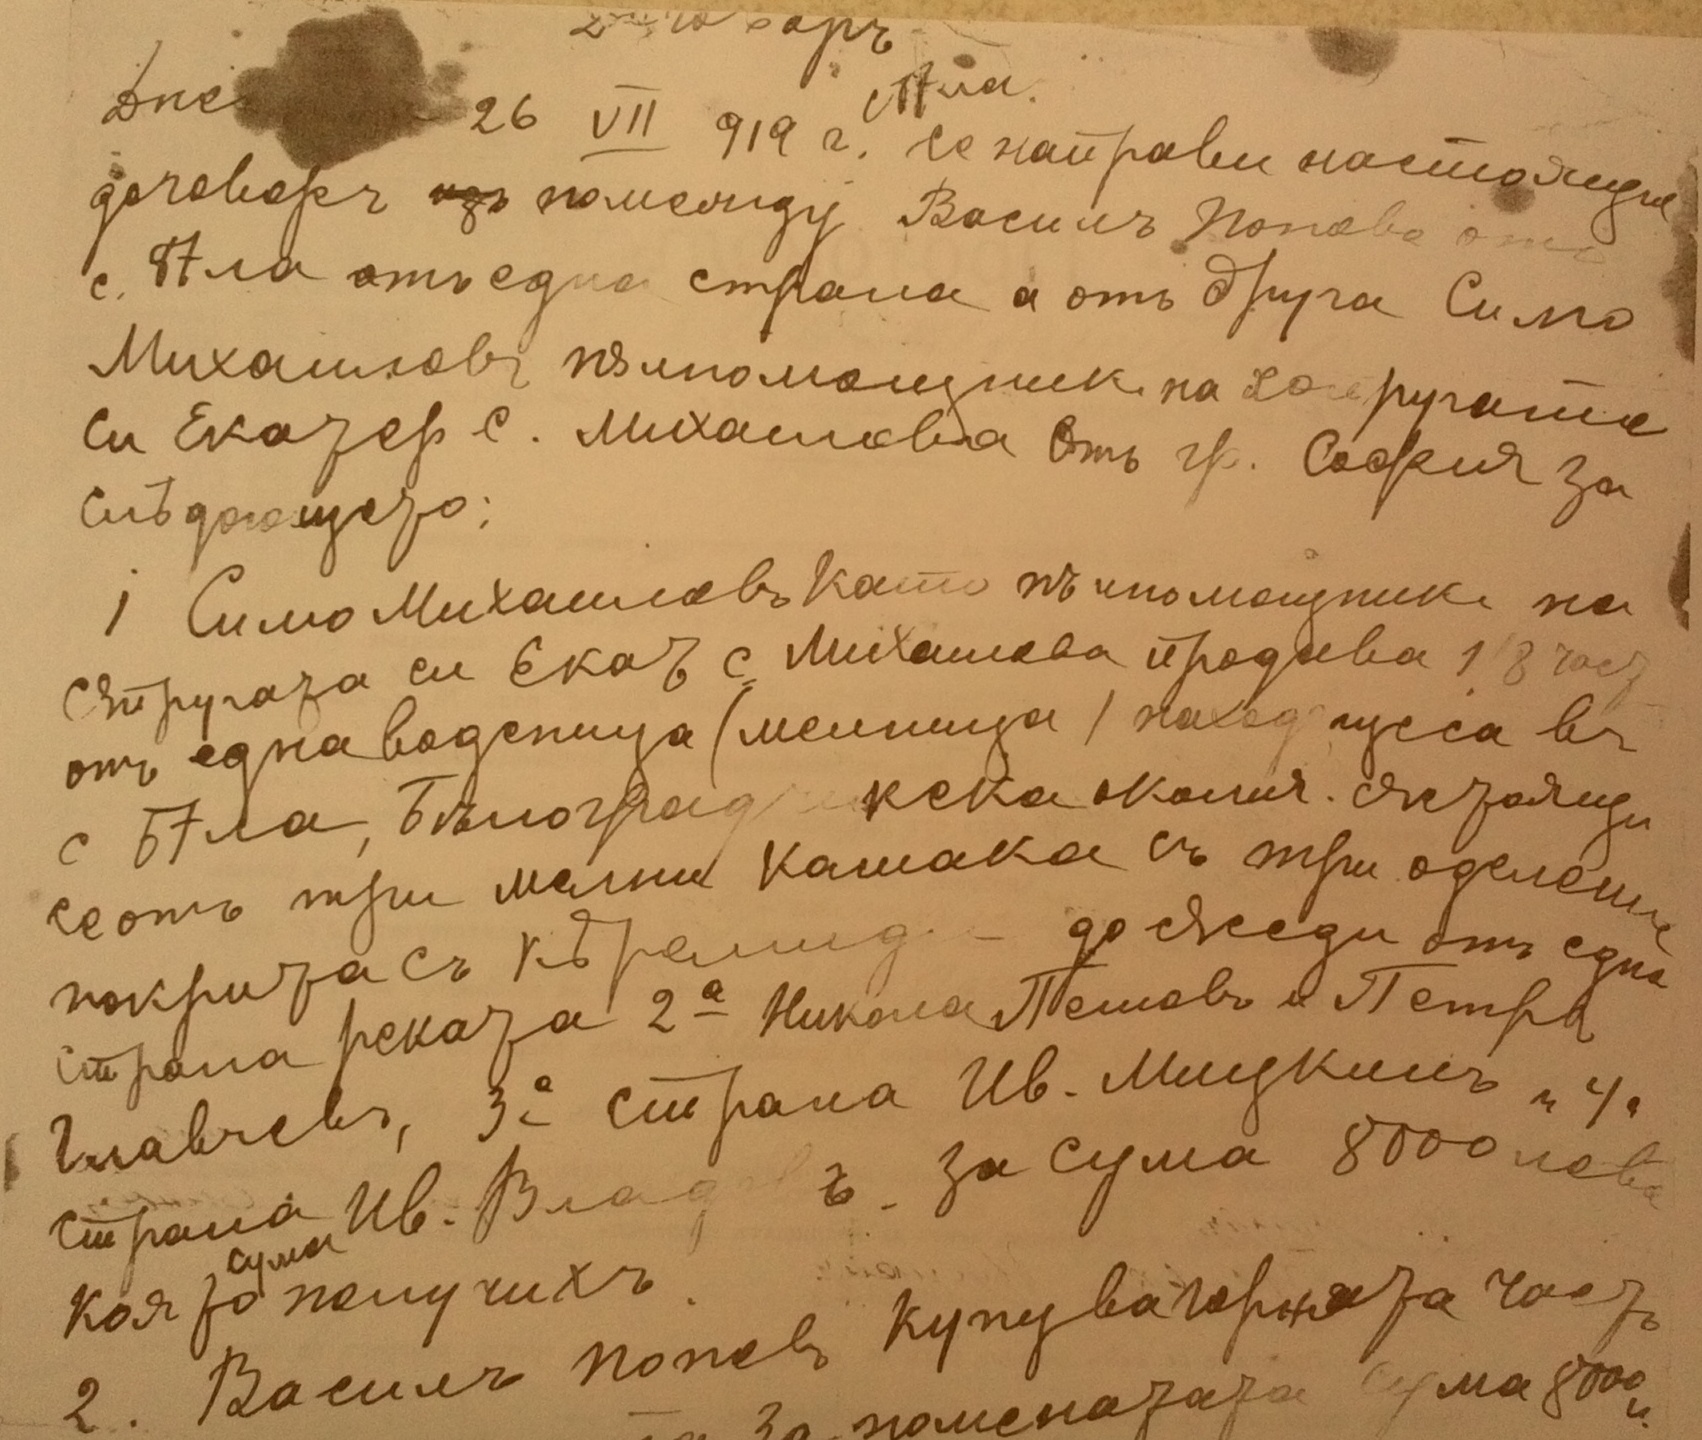 Договоръ
Днес 26 VII 919 г. с. Ѫла. се направи настоящия
договоръ помежду Василъ Попова отъ
с. Ѫла отъ една страна а отъ друга Симо
Михаиловъ пълномощник на съпругата
си Екатер С. Михаилова отъ гр. София за
слѣдующето:
1 Симо Михаиловъ като пълномощникъ на
съпругата си Екат С. Михаилова продава 1/8 часть
отъ една воденица (мелница) находящеса въ
с Ѫла, Бѣлоградчкска околия. състоящи
се отъ три мелни камака съ три оделение
покрита съ кѣрамид до съседи отъ една
страна реката 2а Никола Пешовъ и Петръ
Главчевъ, 3а страна Ив. Мицкинъ и 4а
страна Ив. Владовъ. за сума 8000 лева
която сума получихъ.
2. Василъ Поповъ купува горнята часть
за поменатата сума 8000 л.